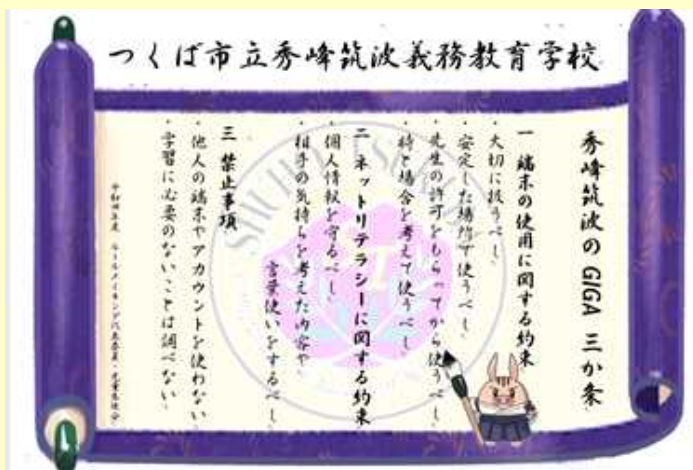 つくば市立秀峰筑波義務教育学校
秀峰筑波のGIGA 三か条
一 端末の使用に関する約束
・大切に扱うべし、
・安定した場所で使うべし、
・先生の許可をもらってから使うべし、
・時と場合を考えて使うべし、
二 ネットリテラシーに関する約束
・個人情報を守るべし、
・相手の気持ちを考えた内容や、
言葉使いをするべし、
三 禁止事項
・他人の端末やアカウントを使わない、
・学習に必要のないことは調べない、
令和四年度 ルールメイキング代表委員・児童生徒会